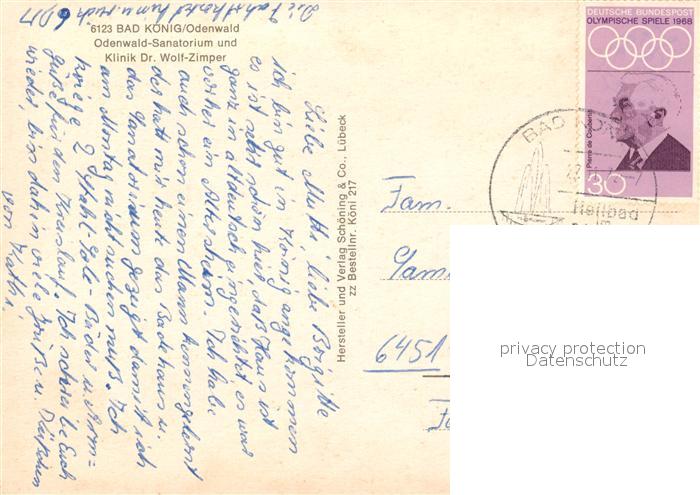 6123 BAD KÖNIG/Odenwald
Odenwald-Sanatorium und
Klinik Dr. Wolf-Zimper
Liebe Mutti, liebe Brigitte
ich bin gut in König angekommen
es ist sehr schön hier, das Haus ist
ganz in altdeutsch eingerichtet es war
vorher ein Altersheim. Ich habe
auch schon einen Mann kennengelernt
der hat mir heute das Badehaus u.
das Sanatorium gezeigt damit ich
am Montag nicht suchen muß. Ich
kriege 2 Sole-Bäder u. Arm-
güße für den Kreislauf. Ich schreibe Euch
wieder, bis dahin viele Grüße u. Küßchen
von
Hersteller und Verlag Schöning & Co., Lübeck
zz Bestellnr. Köni 217
DEUTSCHE BUNDESPOST
OLYMPISCHE SPIELE 1968
Pierre de Coubertin
30
BAD KÖNIG
Heilbad
Fam.
6451
privacy protection
Datenschutz